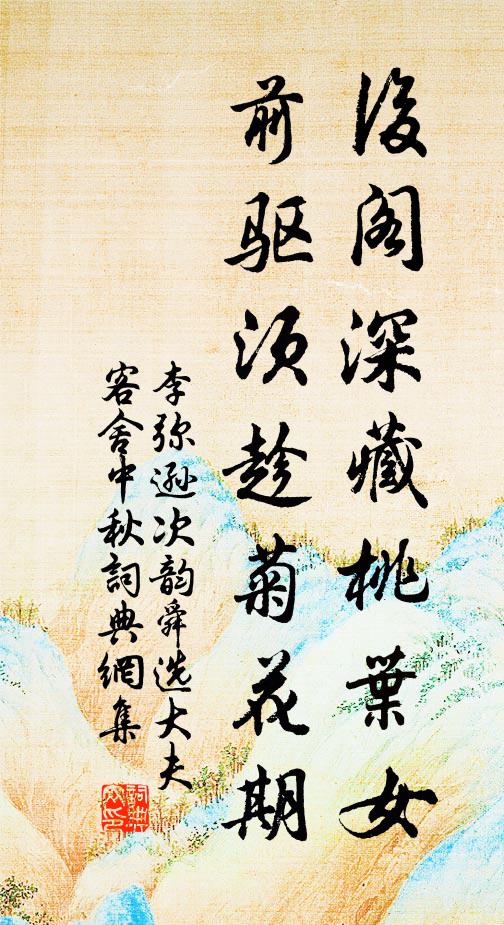 後阁深藏桃葉女
前驱须趁菊花期
李弥逊次韵舜选大夫
客舍中秋詞典網集